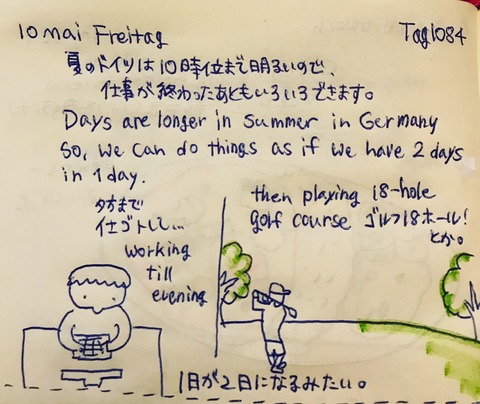 10 mai Freitag
Tag1084
夏のドイツは10時位まで明るいので、
仕事が終わったあともいろいろできます。
Days are longer in summer in Germany
So, we can do things as if we have 2 days
in 1 day.
夕方まで
仕ゴトして...
working
till
evening
then playing 18-hole
golf course ゴルフ18ホール!
とか。
1日が2日になるみたい。